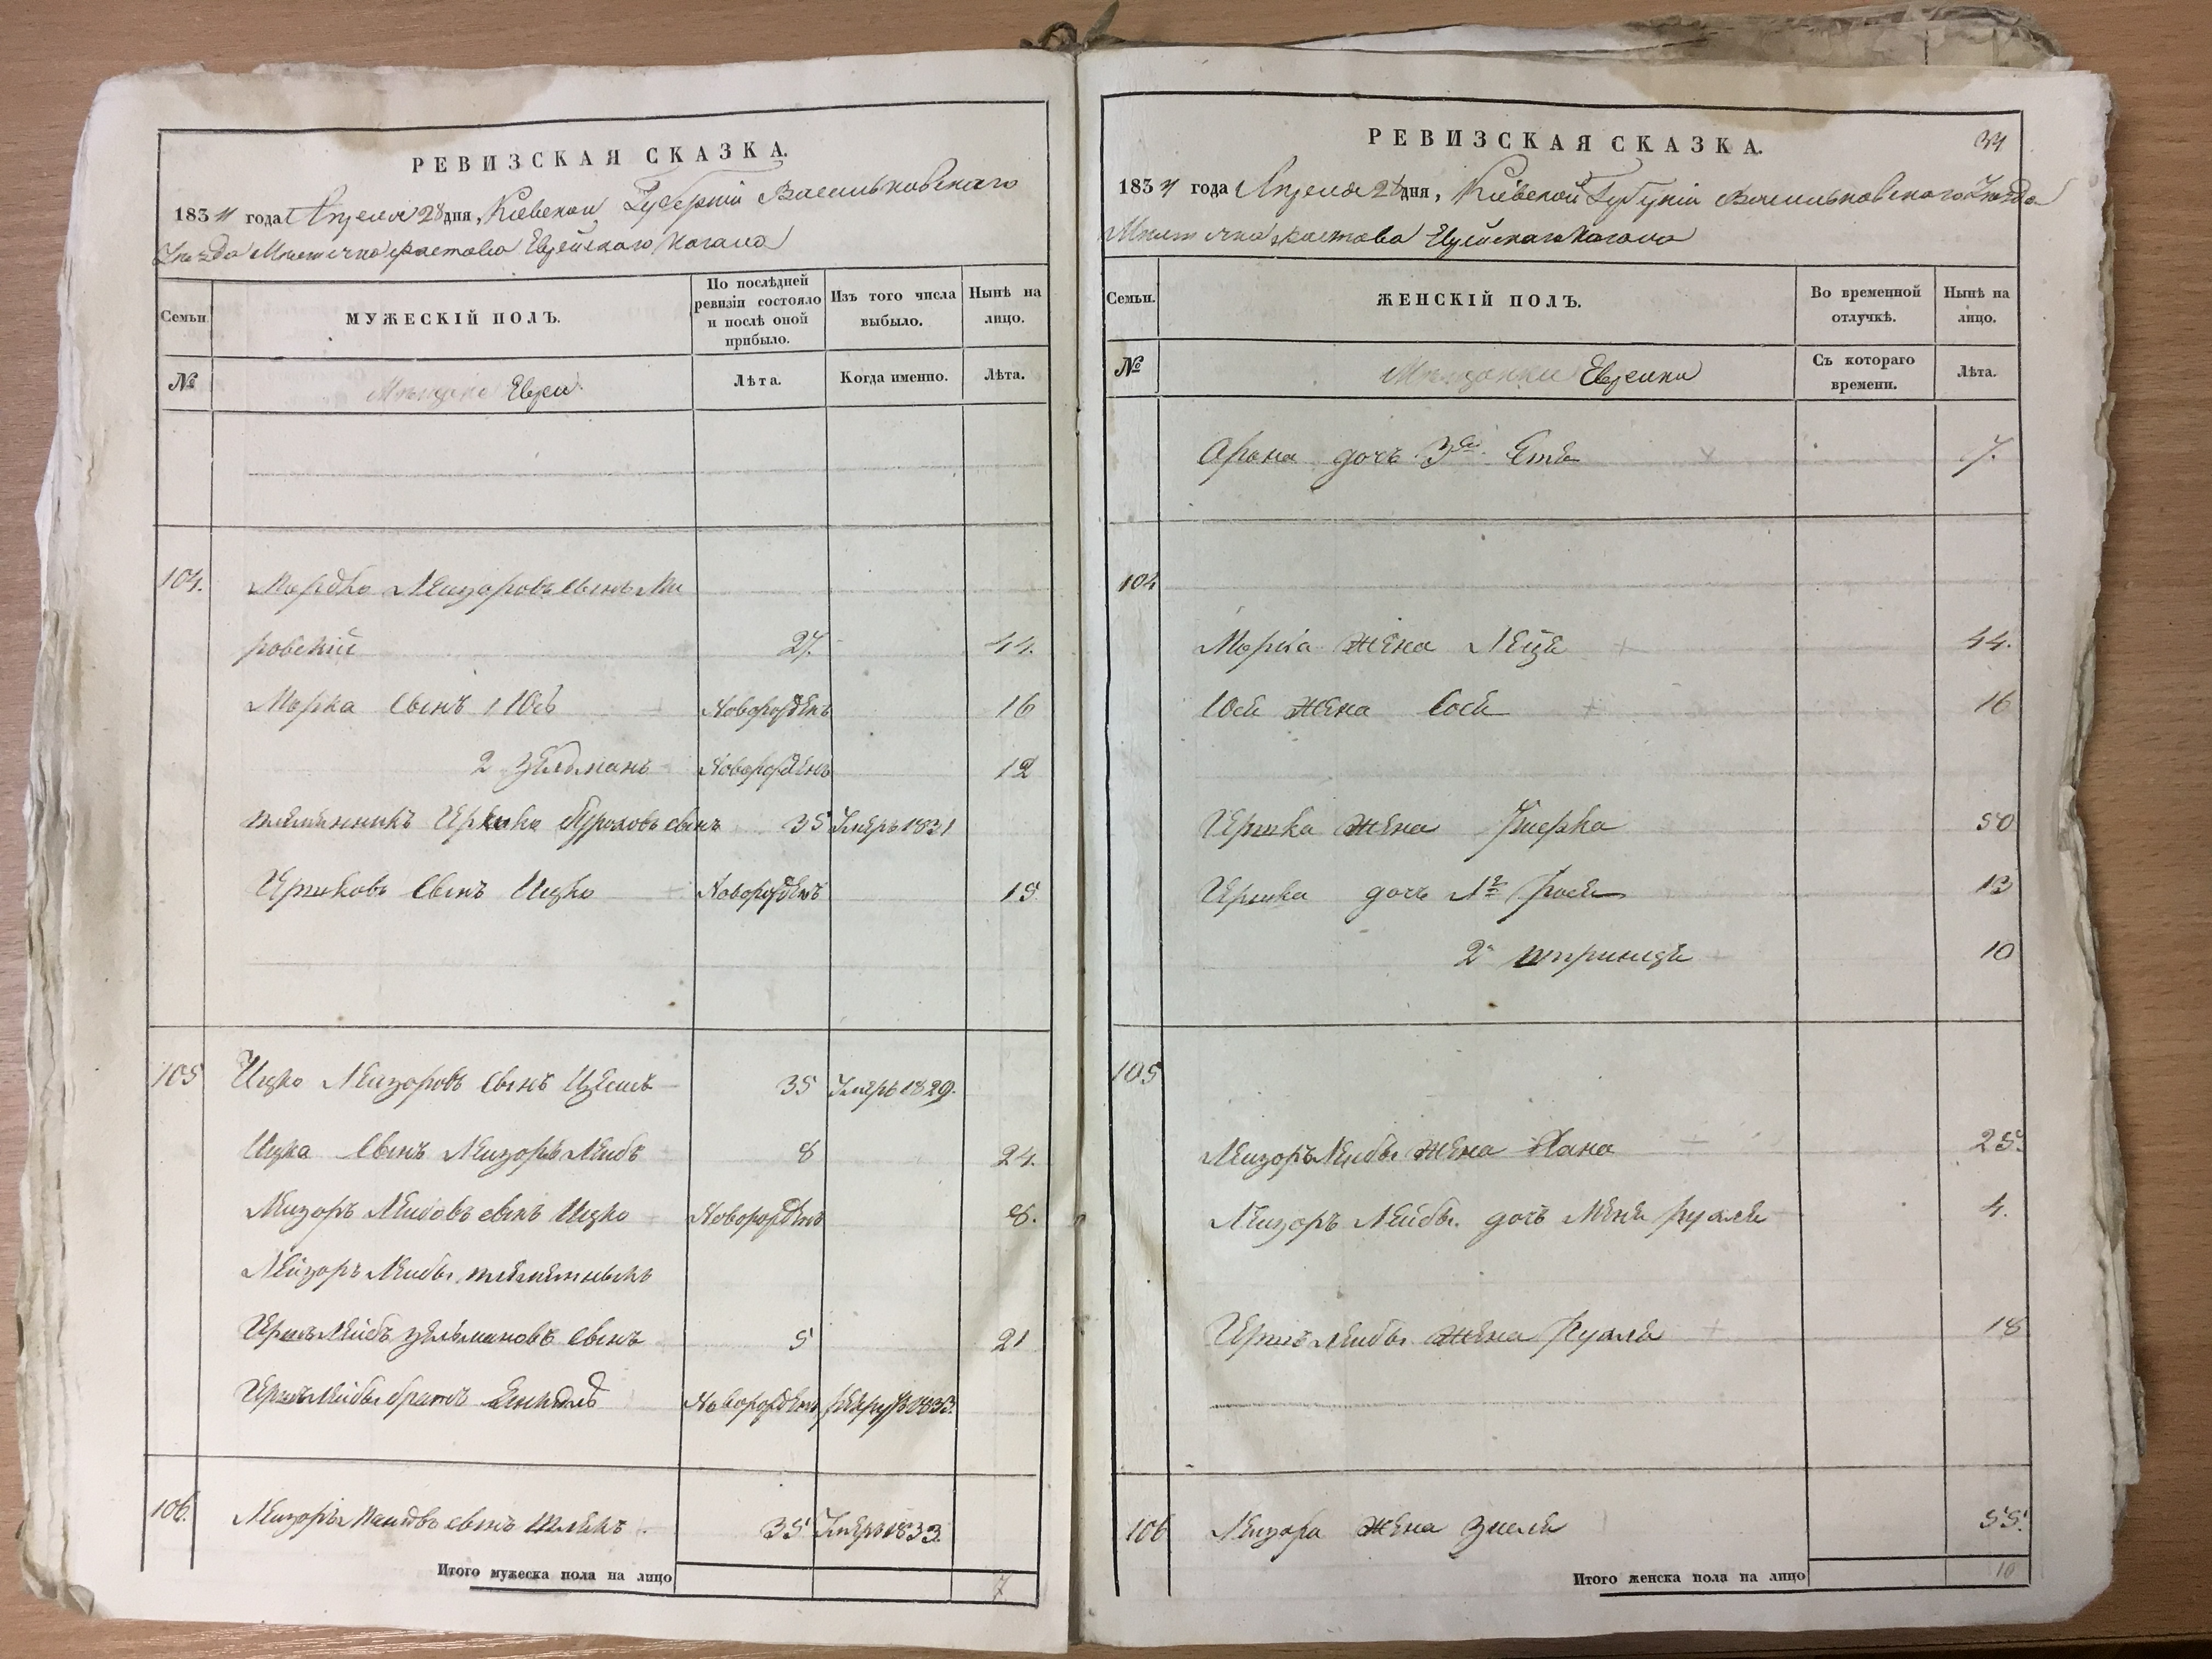 РЕВИЗСКАЯ СКАЗКА.
1834 года Апреля 28 дня, Киевской Губернии Васильковского
Уезда Местечка Фастова Еврейского Кагала
Семьи.
МУЖЕСКІЙ ПОЛЪ.
По послѣдней ревизіи состояло и послѣ оной прибыло.
Изъ того числа выбыло.
Нынѣ на лицо.
№
Мещане Евреи
Лѣта.
Когда именно.
Лѣта.
104. Мордко Лейзоровъ сынъ Ми
ровский 27. 44.
Морка сынъ 1 Юсь Новорожденъ 16
2 Зельманъ Новорожденъ 12
племянникъ Гершко сынъ 35 Умеръ 1831
Гершковъ сынъ Ицко Новорожденъ 15
105 Ицко Лейзоровъ сынъ 35 Умеръ 1829.
Ицка сынъ Лейзоръ Лейбъ 8 24.
Лейзоръ Лейбовъ сынъ Ицко Новорожденъ 8.
Лейзоръ Лейбы племянникъ
Гершъ Лейбъ Зельмановъ сынъ 5 21
Гершъ Лейбы братъ Новорожденъ 1833.
106. Лейзоръ сынъ 35 Умеръ 1833.
Итого мужеска пола на лицо 7
РЕВИЗСКАЯ СКАЗКА.
1834 года Апреля 28 дня, Киевской Губернии Васильковского Уезда
Местечка Фастова Еврейского Кагала
Семьи.
ЖЕНСКІЙ ПОЛЪ.
Во временной отлучкѣ.
Нынѣ на лицо.
№
Мещанки Еврейки
Съ котораго времени.
Лѣта.
Арона дочь 3я Етя 7.
104
Морка жена 44.
Юся жена Сося 16
Гершка жена 50
Гершка дочь 1я 13
2я Шпринця 10
105
Лейзоръ Лейбы жена Хана 25.
Лейзоръ Лейбы дочь Рухля 4.
Гершъ Лейбы жена Рухля 18
106 Лейзора жена 55.
Итого женска пола на лицо 10